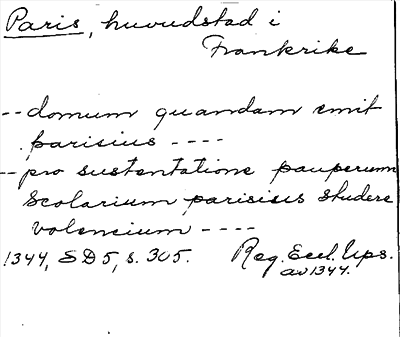 Paris, huvudstad i
Frankrike
-- domum quandam emit
parisius ----
-- pro sustentatione pauperum
scolarium parisius studere
volencium ----
1344, SD5, s. 305. Reg. Eccl. Ups.
av 1344.